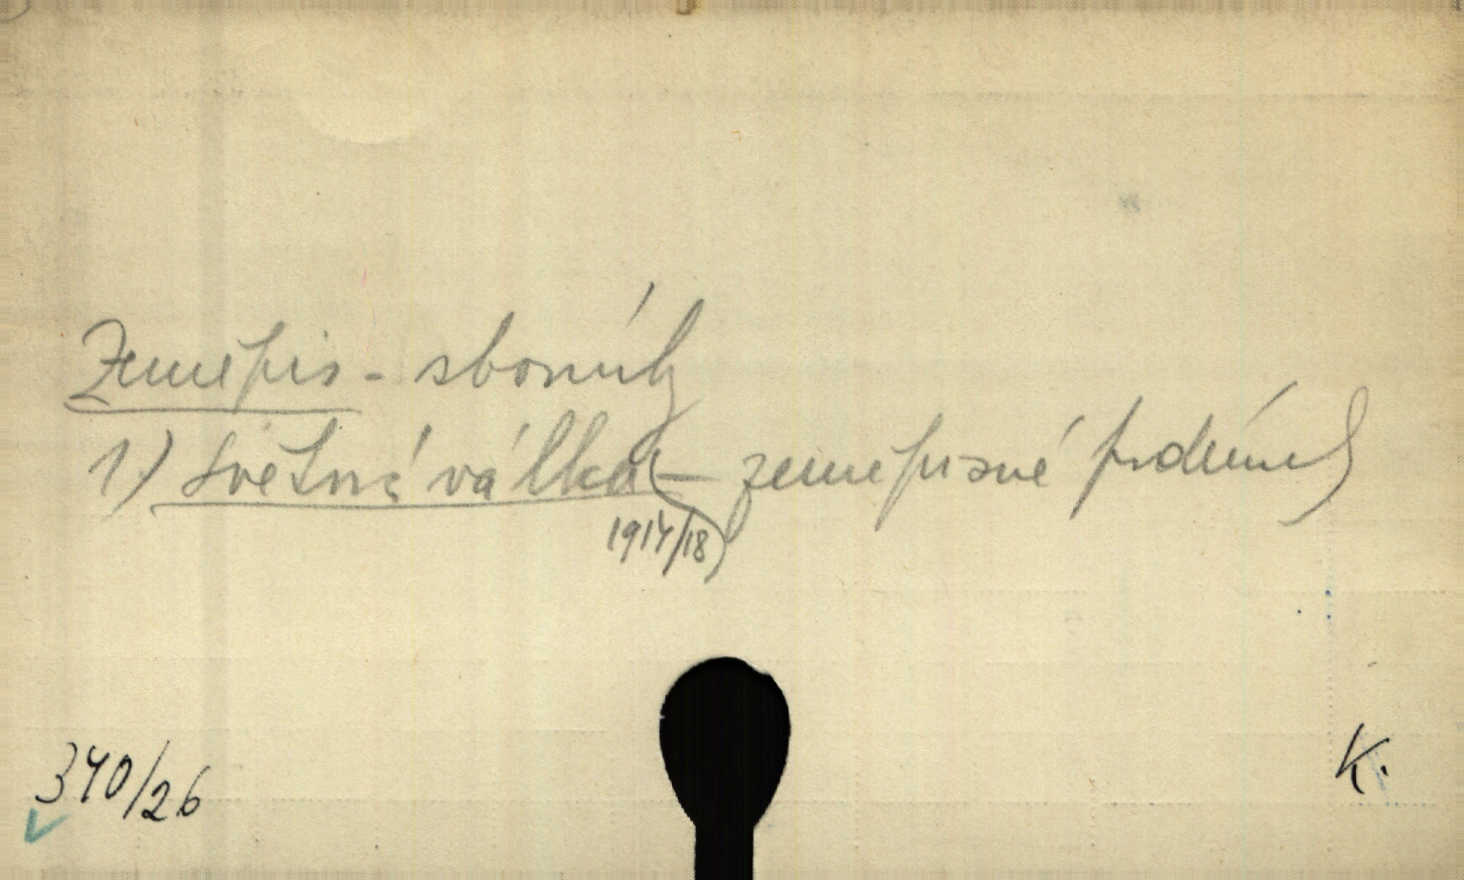 Zeměpis - sborníky
1.) Světová válka - zeměpisné podmínky
(1914/18)
340/26
K.